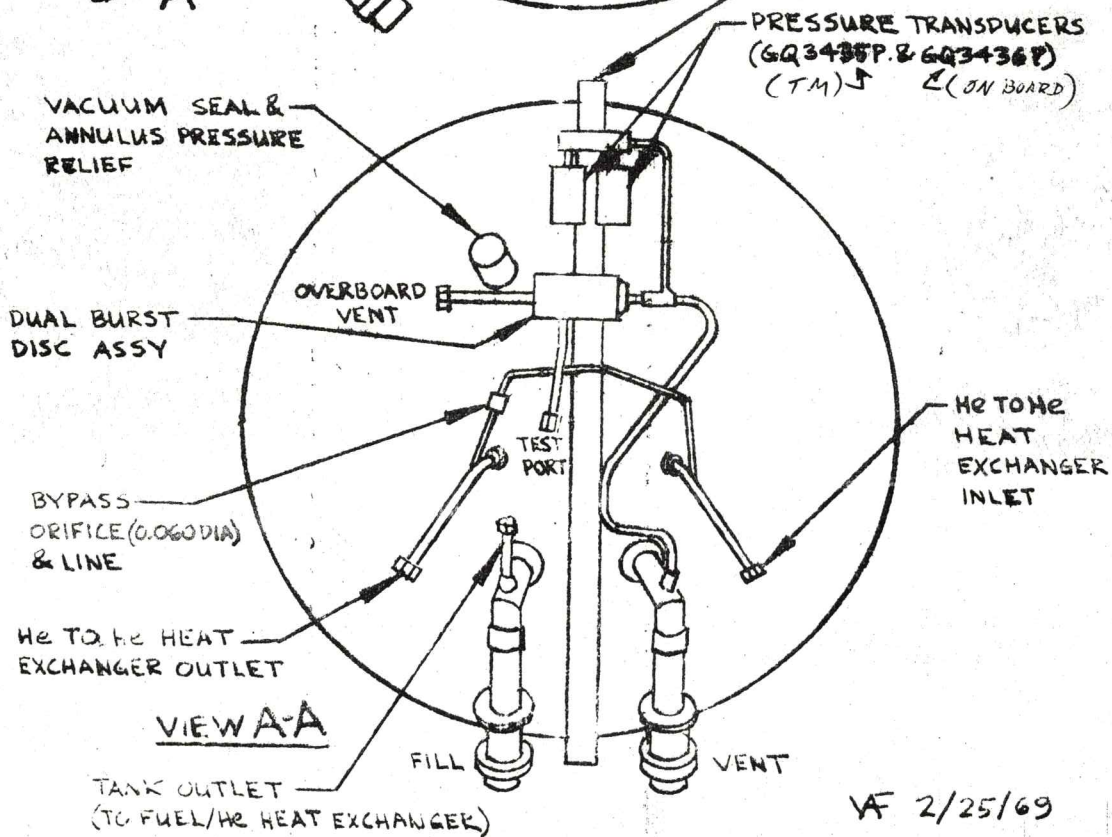 A
PRESSURE TRANSDUCERS
(GQ3435P. & GQ3436P)
(TM) (ON BOARD)
VACUUM SEAL &
ANNULUS PRESSURE
RELIEF
OVERBOARD
VENT
DUAL BURST
DISC ASSY
TEST
PORT
He TO He
HEAT
EXCHANGER
INLET
BYPASS
ORIFICE (0.060 DIA)
& LINE
He TO He HEAT
EXCHANGER OUTLET
VIEW A-A
FILL
VENT
TANK OUTLET
(TO FUEL/He HEAT EXCHANGER)
2/25/69